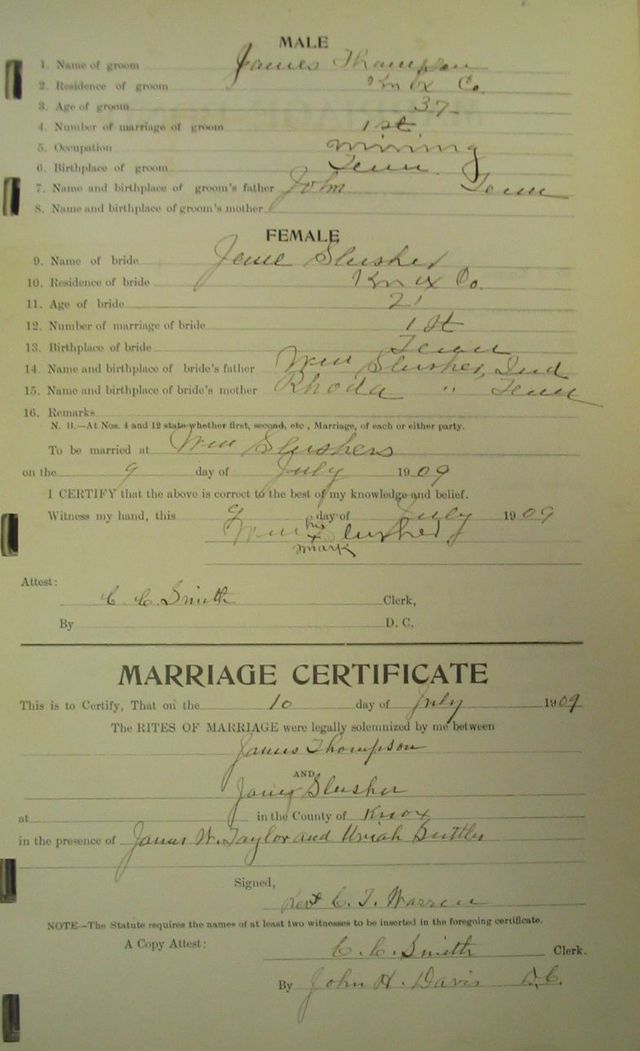 MALE
1. Name of groom James Thompson
2. Residence of groom Knox Co.
3. Age of groom 37
4. Number of marriage of groom 1st
5. Occupation mining
6. Birthplace of groom Tenn.
7. Name and birthplace of groom's father John Tenn
8. Name and birthplace of groom's mother
FEMALE
9. Name of bride Slusher
10. Residence of bride Knox Co.
11. Age of bride 21
12. Number of marriage of bride 1st
13. Birthplace of bride Tenn
14. Name and birthplace of bride's father Wm Slusher, Ind
15. Name and birthplace of bride's mother Rhoda " Tenn
16. Remarks
N. B.—At Nos. 4 and 12 state whether first, second, etc, Marriage, of each or either party.
To be married at Wm Slushers
on the 9 day of July 1909
I CERTIFY that the above is correct to the best of my knowledge and belief.
Witness my hand, this 9 day of July 1909
Wm his x mark Slusher
Attest:
C. C. Smith Clerk,
By D. C.
MARRIAGE CERTIFICATE
This is to Certify, That on the 10 day of July 1909
The RITES OF MARRIAGE were legally solemnized by me between
James Thompson
AND
Slusher
at in the County of Knox
in the presence of James W. Taylor and Uriah
Signed,
Rev C. T. Warren
NOTE—The Statute requires the names of at least two witnesses to be inserted in the foregoing certificate.
A Copy Attest: C. C. Smith Clerk.
By John H. Davis D.C.